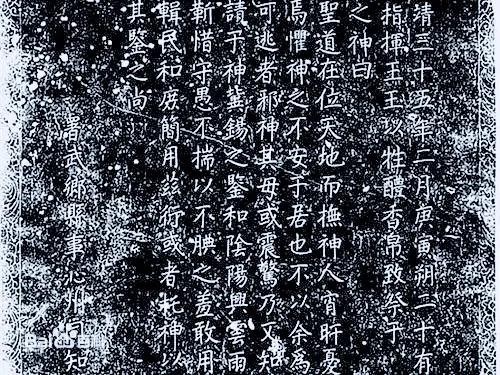 靖三十五年二月庚寅朔二十有
指揮王王以牲醴香帛致祭于
之神曰
聖道在位天地而撫神人宵旰憂
焉懼神之不安于吾也不以余為
可逃者邪神其毋或震驚乃又知
請于神冀錫之鑒和陰陽興雲雨
靳惜守愚不揣以不腆之羞敢用
輯民和庶簡用兹衍或者托神以
其鑒之尚
署武鄉縣事心州同知
Bai 百科